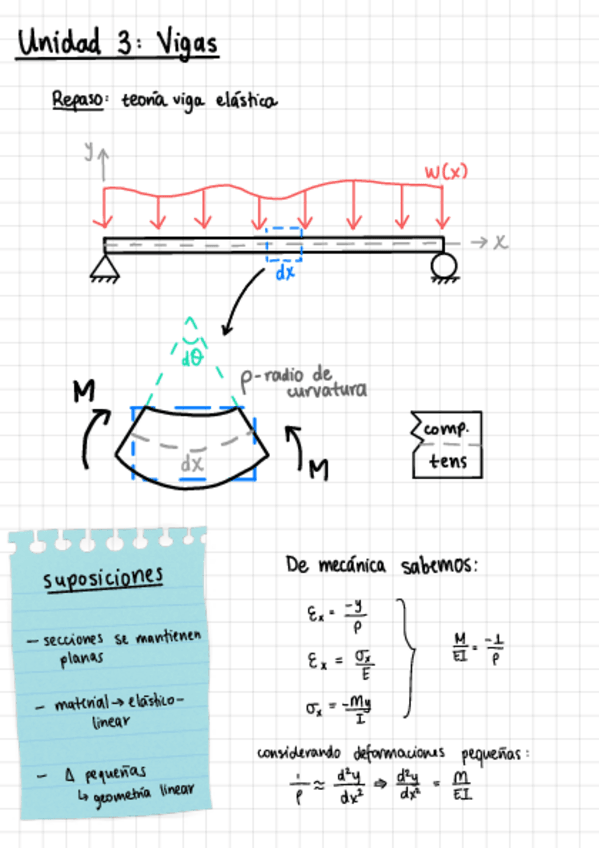 Unidad 3: Vigas
Repaso: teoría viga elástica
y
w(x)
x
dx
dθ
ρ-radio de
curvatura
M
dx
M
comp.
tens
suposiciones
- secciones se mantienen
planas
- material → elástico-
linear
- Δ pequeñas
↳ geometría linear
De mecánica sabemos:
εx = -y/ρ
εx = σx/E
σx = -My/I
M/EI = -1/ρ
considerando deformaciones pequeñas:
1/ρ ≈ d²y/dx² ⇒ d²y/dx² = M/EI